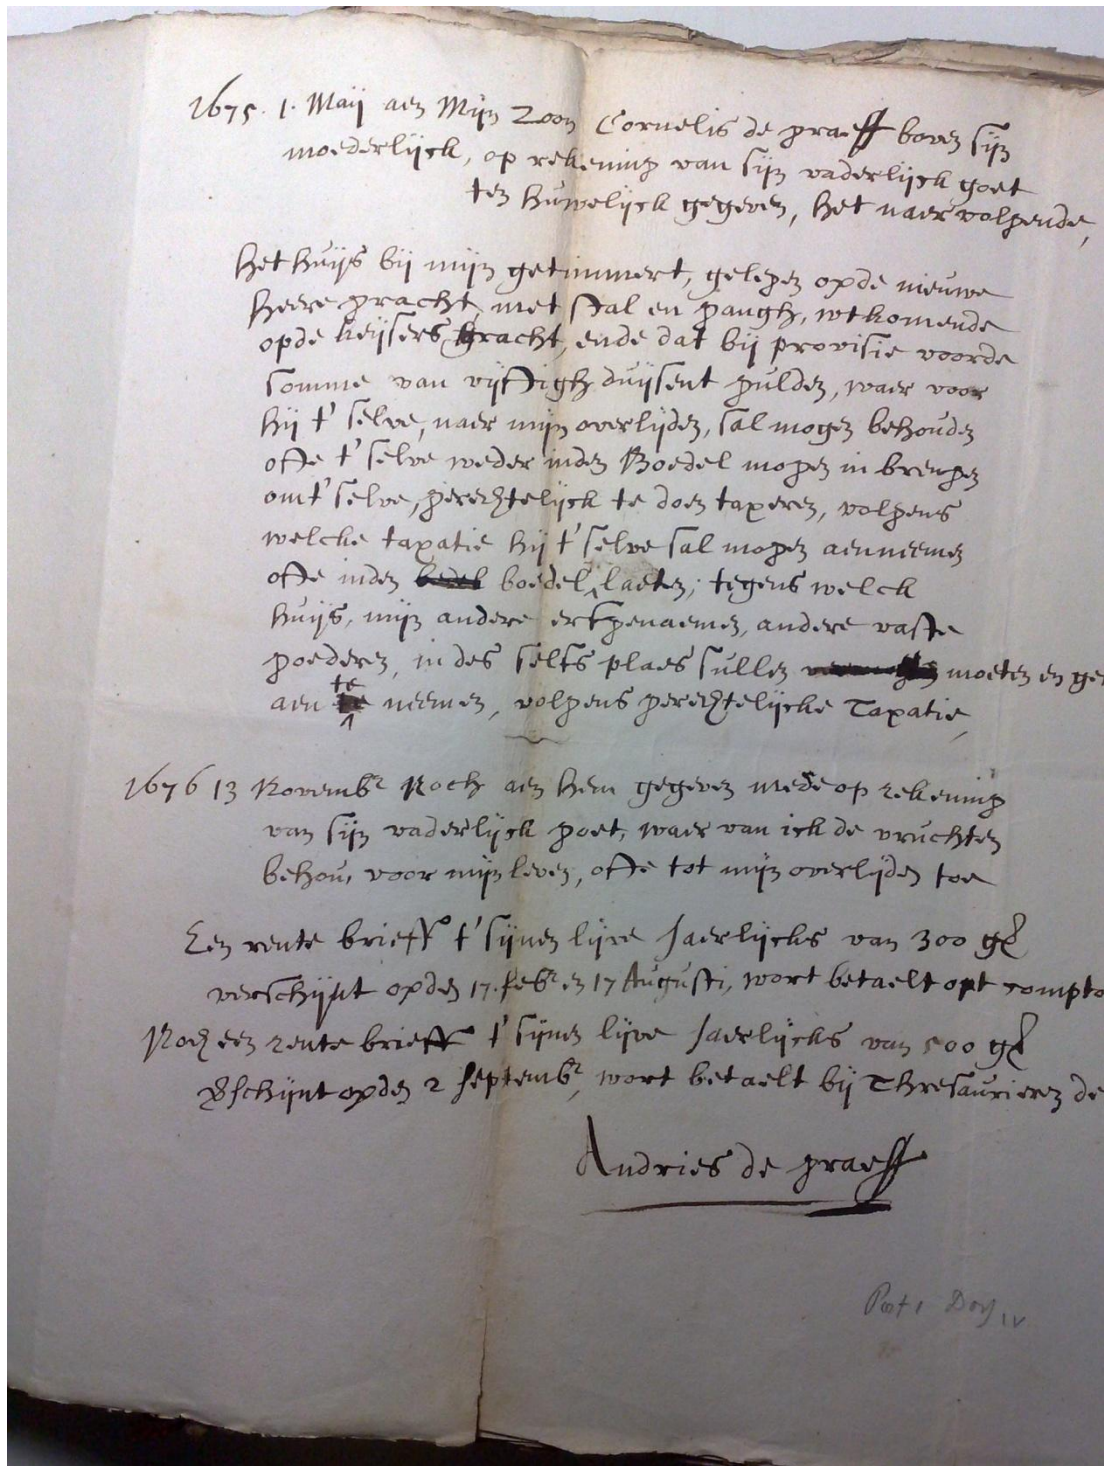 1675. 1. Maij aen Mijn Zoon Cornelis de graeff boven sijn
moederlijck, op rekening van sijn vaderlijck goet
ten huwelijck gegeven, het naervolgende,
het huijs bij mijn getimmert, gelegen opde nieuwe
heere gracht, met stal en gangh, wtkomende
opde keijsers gracht, ende dat bij provisie voorde
somme van vijftigh duijsent gulden, waer voor
hij t' selve, naer mijn overlijden, sal mogen behouden
ofte t' selve weder inden Boedel mogen in brengen
om t' selve, gerechtelijck te doen taxeren, volgens
welcke taxatie hij t' selve sal mogen aenneemen
ofte inden boedel laeten; tegens welck
huijs, mijn andere erfgenaemen, andere vaste
goederen, in des selfs plaes sullen moeten en
aen te neemen, volgens gerechtelijcke Taxatie,
1676 13 Novembr Noch aen hem gegeven mede op rekening
van sijn vaderlijck goet, waer van ick de vruchten
behou, voor mijn leven, ofte tot mijn overlijden toe
Een rente brieff t' sijnen lijve Jaerlijcks van 300 gl
verschijnt opden 17. febr en 17 Augusti, wort betaelt opt compto
Noch een rente brieff t' sijnen lijve Jaerlijcks van 500 gl
Vschijnt opden 2 septembr, wort betaelt bij Thresaurieren de
Andries de graeff